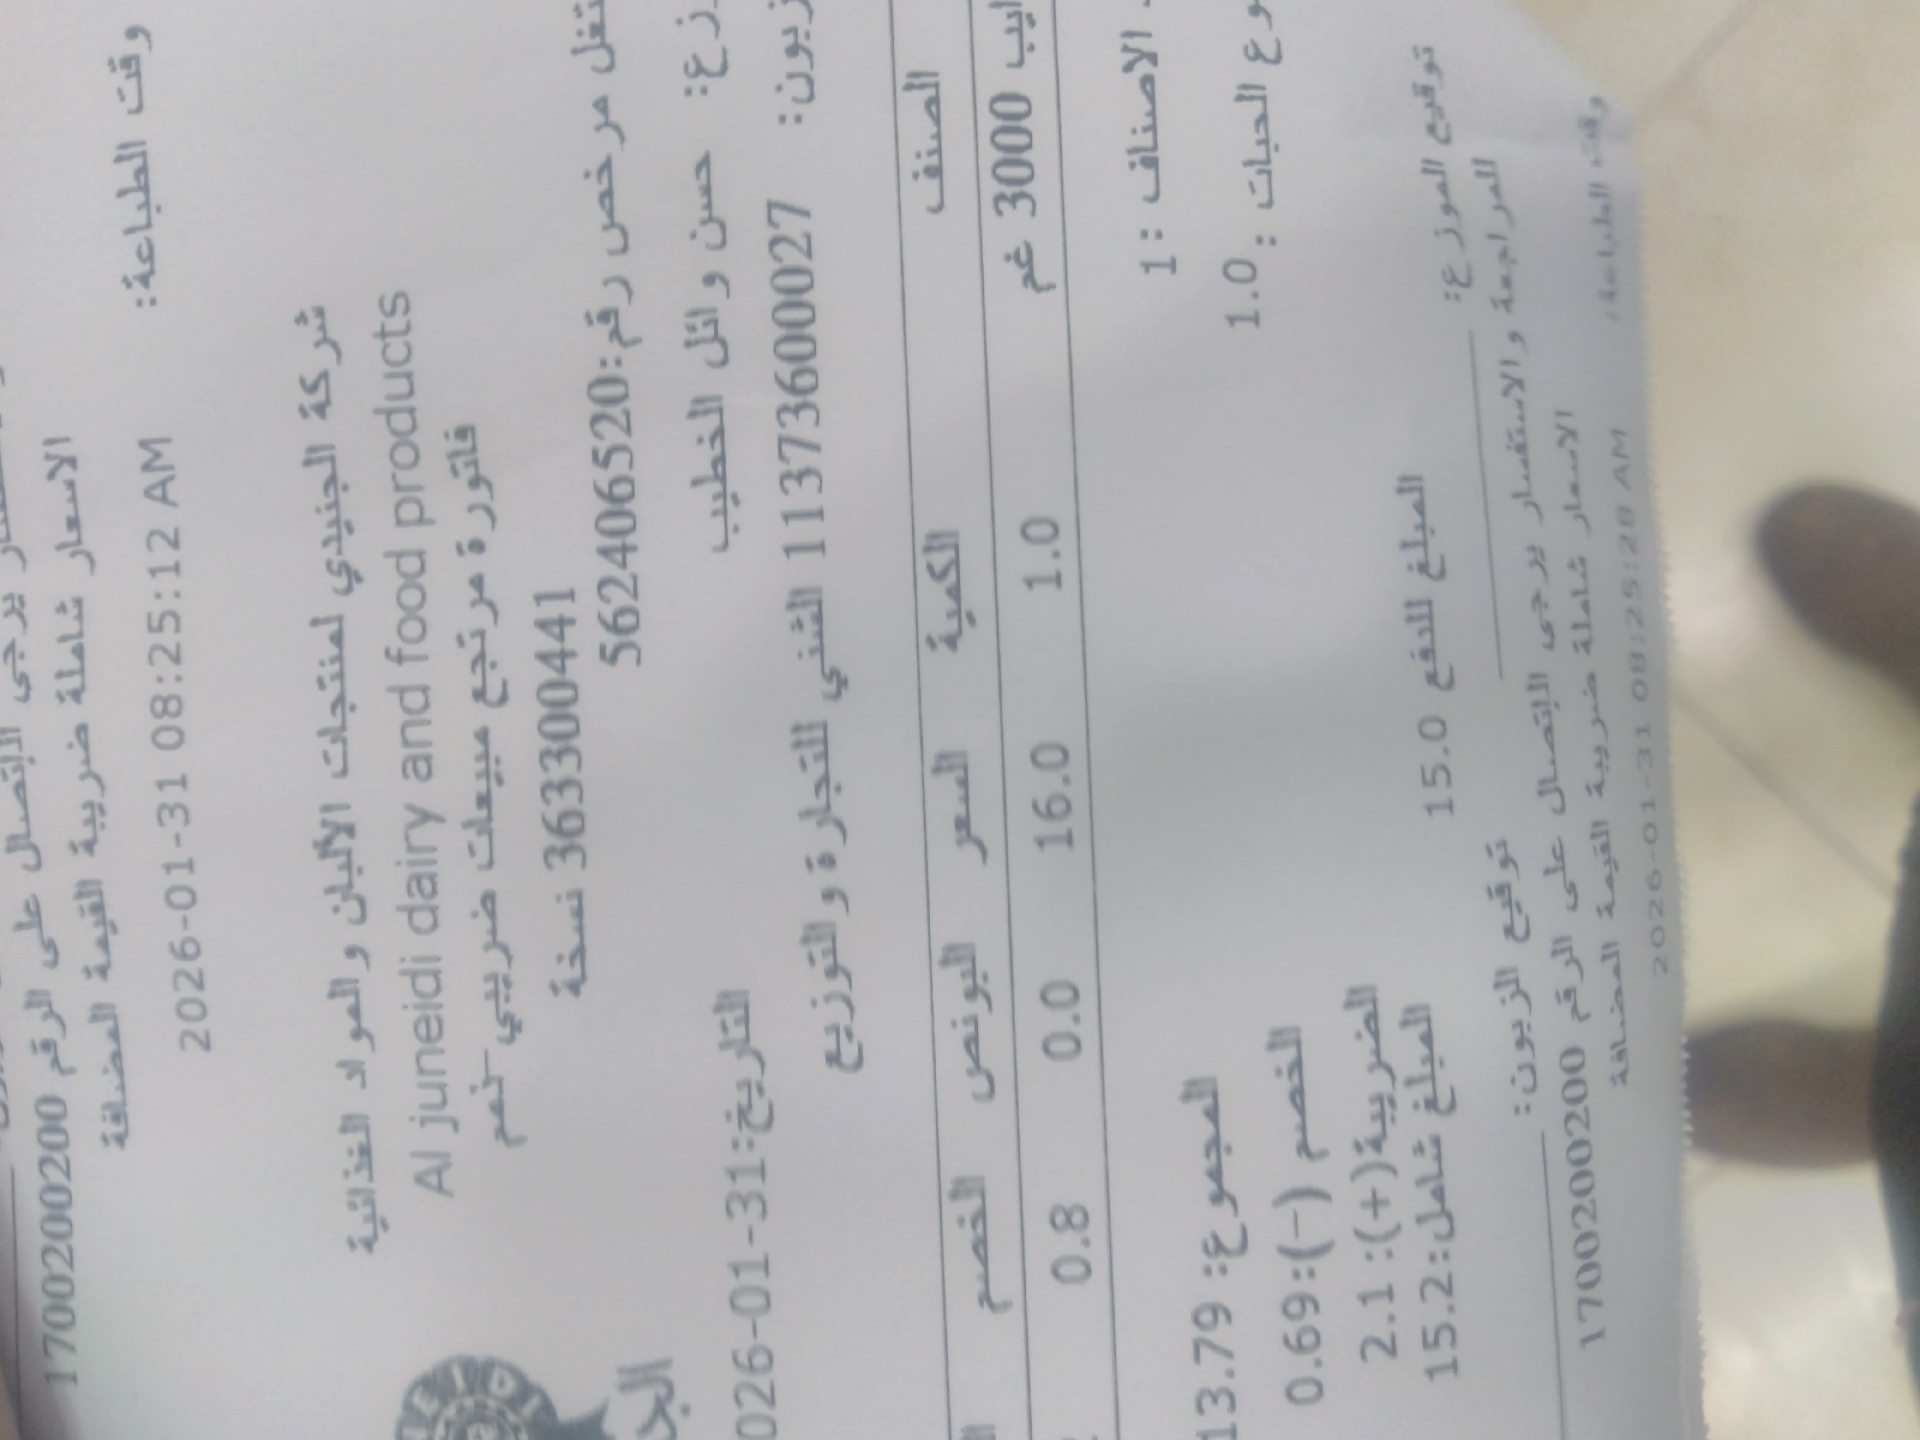 يرجى الإتصال على الرقم 1700200200
الاسعار شاملة ضريبة القيمة المضافة
وقت الطباعة: 2026-01-31 08:25:12 AM
شركة الجنيدي لمنتجات الألبان والمواد الغذائية
Al juneidi dairy and food products
فاتورة مرتجع مبيعات ضريبي
363300441 نسخة
مرخص رقم:562406520
حسن وائل الخطيب
التاريخ:026-01-31
11373600027 الشني للتجارة والتوزيع
الصنف الكمية السعر البونص الخصم
3000 غم 1.0 16.0 0.0 0.8
الاصناف : 1
المجموع: 13.79
الحبات : 1.0
الخصم (-):0.69
الضريبة(+): 2.1
المبلغ شامل:15.2
المبلغ للدفع 15.0
توقيع الموزع:
توقيع الزبون:
للمراجعة والاستفسار يرجى الإتصال على الرقم 1700200200
الاسعار شاملة ضريبة القيمة المضافة
وقت الطباعة: 2026-01-31 08:25:28 AM